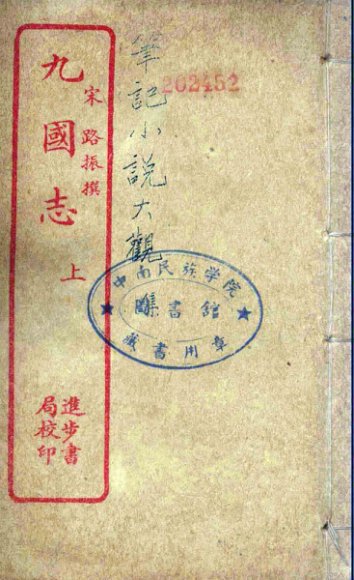 202452
筆記小說大觀
宋 路振撰
九國志 上
進步書
局校印
中南民族学院
書館
藏書用章